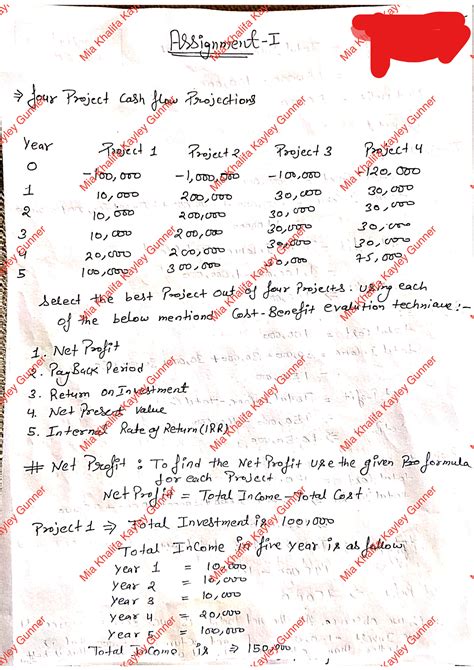 Assignment-I
⇒ four Project Cash flow Projections
Year Project 1 Project 2 Project 3 Project 4
0 -100,000 -1,000,000 -100,000 -120,000
1 10,000 200,000 30,000 30,000
2 10,000 200,000 30,000 30,000
3 10,000 200,000 30,000 30,000
4 20,000 200,000 30,000 30,000
5 100,000 300,000 30,000 75,000
Select the best Project out of four Projects. using each
of the below mentiond Cost-Benefit evalution technique:-
1. Net Profit
2. PayBack Period
3. Return on Investment
4. Net Present Value
5. Internal Rate of Return (IRR)
# Net Profit : To find the Net Profit use the given formula
for each Project.
Net Profit = Total Income - Total Cost
Project 1 ⇒ Total Investment is 100,000
Total Income in five year is as follow
Year 1 = 10,000
Year 2 = 10,000
Year 3 = 10,000
Year 4 = 20,000
Year 5 = 100,000
Total Income is ⇒ 150,000
Mia Khalifa Kayley Gunner